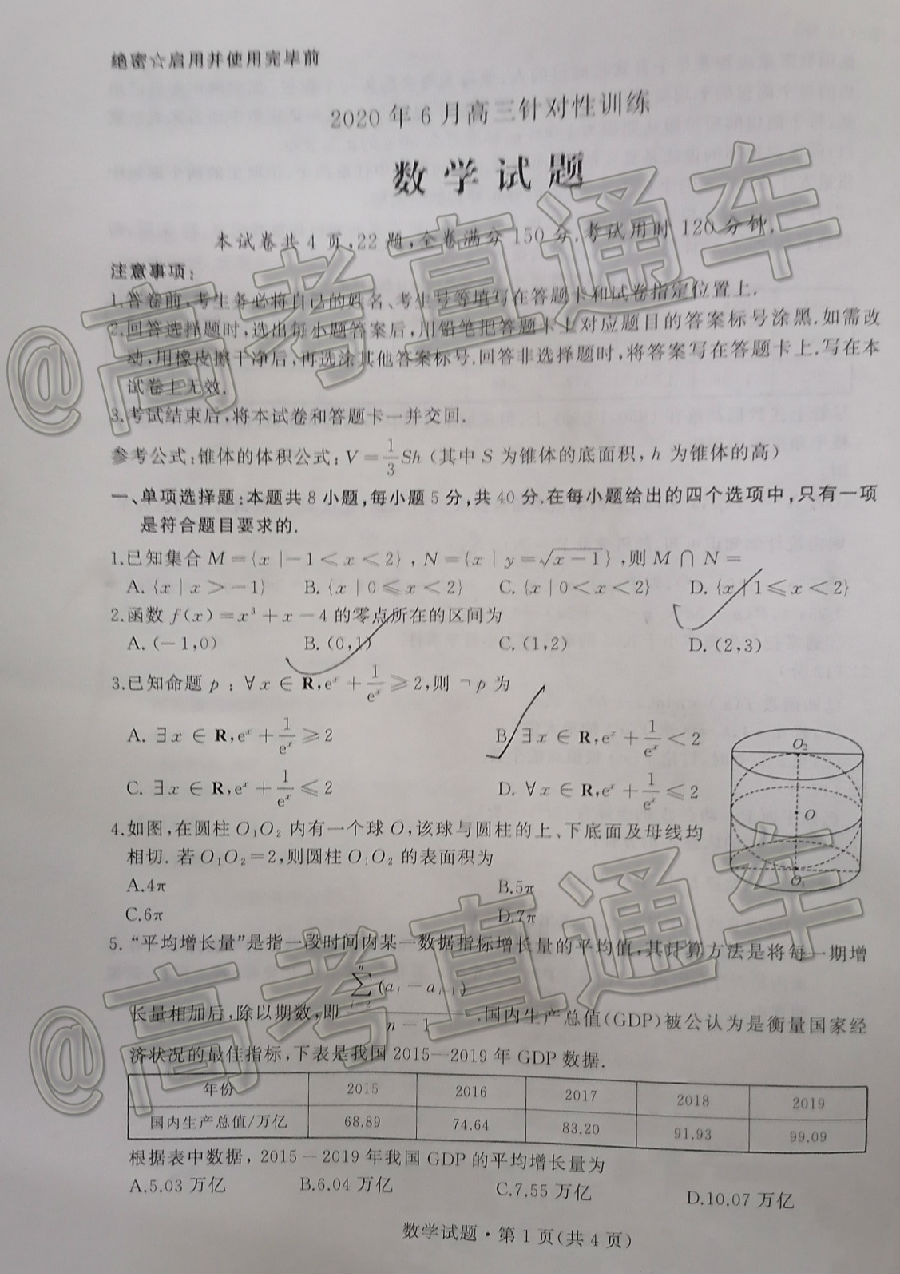 绝密☆启用并使用完毕前
2020年6月高三针对性训练
数学试题
本试卷共4页,22题,全卷满分150分.考试用时120分钟.
注意事项:
1.答卷前,考生务必将自己的姓名、考生号等填写在答题卡和试卷指定位置上.
2.回答选择题时,选出每小题答案后,用铅笔把答题卡上对应题目的答案标号涂黑.如需改
动,用橡皮擦干净后,再选涂其他答案标号.回答非选择题时,将答案写在答题卡上.写在本
试卷上无效.
3.考试结束后,将本试卷和答题卡一并交回.
参考公式:锥体的体积公式:V=1/3Sh (其中S为锥体的底面积,h为锥体的高)
一、单项选择题:本题共8小题,每小题5分,共40分.在每小题给出的四个选项中,只有一项
是符合题目要求的.
1.已知集合M={x|-1<x<2},N={x|y=√(x-1)},则M∩N=
A.{x|x>-1} B.{x|0≤x<2} C.{x|0<x<2} D.{x|1≤x<2}
2.函数f(x)=x³+x-4的零点所在的区间为
A.(-1,0) B.(0,1) C.(1,2) D.(2,3)
3.已知命题p:∀x∈R,eˣ+1/eˣ≥2,则¬p为
A.∃x∈R,eˣ+1/eˣ≥2 B.∃x∈R,eˣ+1/eˣ<2
C.∃x∈R,eˣ+1/eˣ≤2 D.∀x∈R,eˣ+1/eˣ≤2
O₂
O
O₁
4.如图,在圆柱O₁O₂内有一个球O,该球与圆柱的上、下底面及母线均
相切.若O₁O₂=2,则圆柱O₁O₂的表面积为
A.4π B.5π
C.6π D.7π
5.“平均增长量”是指一段时间内某一数据指标增长量的平均值,其计算方法是将每一期增
长量相加后,除以期数,即 ∑(aᵢ-aᵢ₋₁)/(n-1).国内生产总值(GDP)被公认为是衡量国家经
济状况的最佳指标,下表是我国2015—2019年GDP数据.
年份 2015 2016 2017 2018 2019
国内生产总值/万亿 68.89 74.64 83.20 91.93 99.09
根据表中数据,2015—2019年我国GDP的平均增长量为
A.5.03万亿 B.6.04万亿 C.7.55万亿 D.10.07万亿
数学试题·第1页(共4页)
@高考直通车
@高考直通车